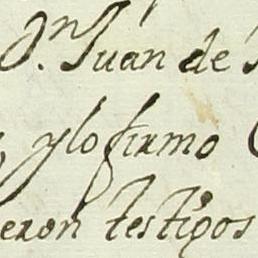 Dn. Juan de
ylo firmo
eron testigos